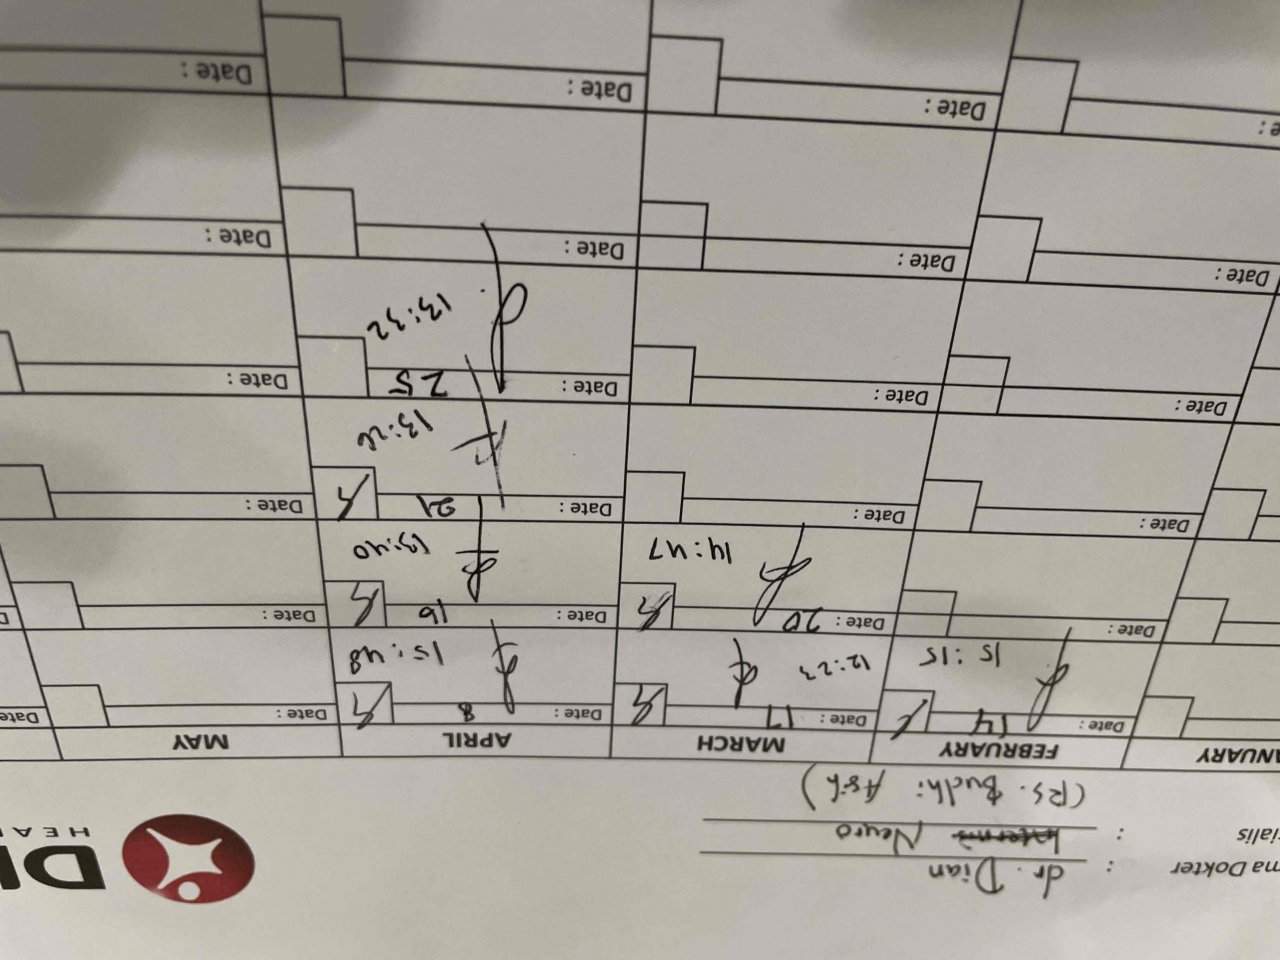 ma Dokter : dr. Dian
DI
HEA
ialis : Neuro
(RS. Budhi Asih)
NUARY FEBRUARY MARCH APRIL MAY
Date : 14 Date : 17 Date : 8 Date : Date
15:15 12:23 15:48
Date : Date : 20 Date : 16 Date : D
14:47 13:40
Date : Date : Date : 21 Date :
13:26
Date : Date : Date : 25 Date :
13:32
Date : Date : Date : Date :
e : Date : Date : Date :